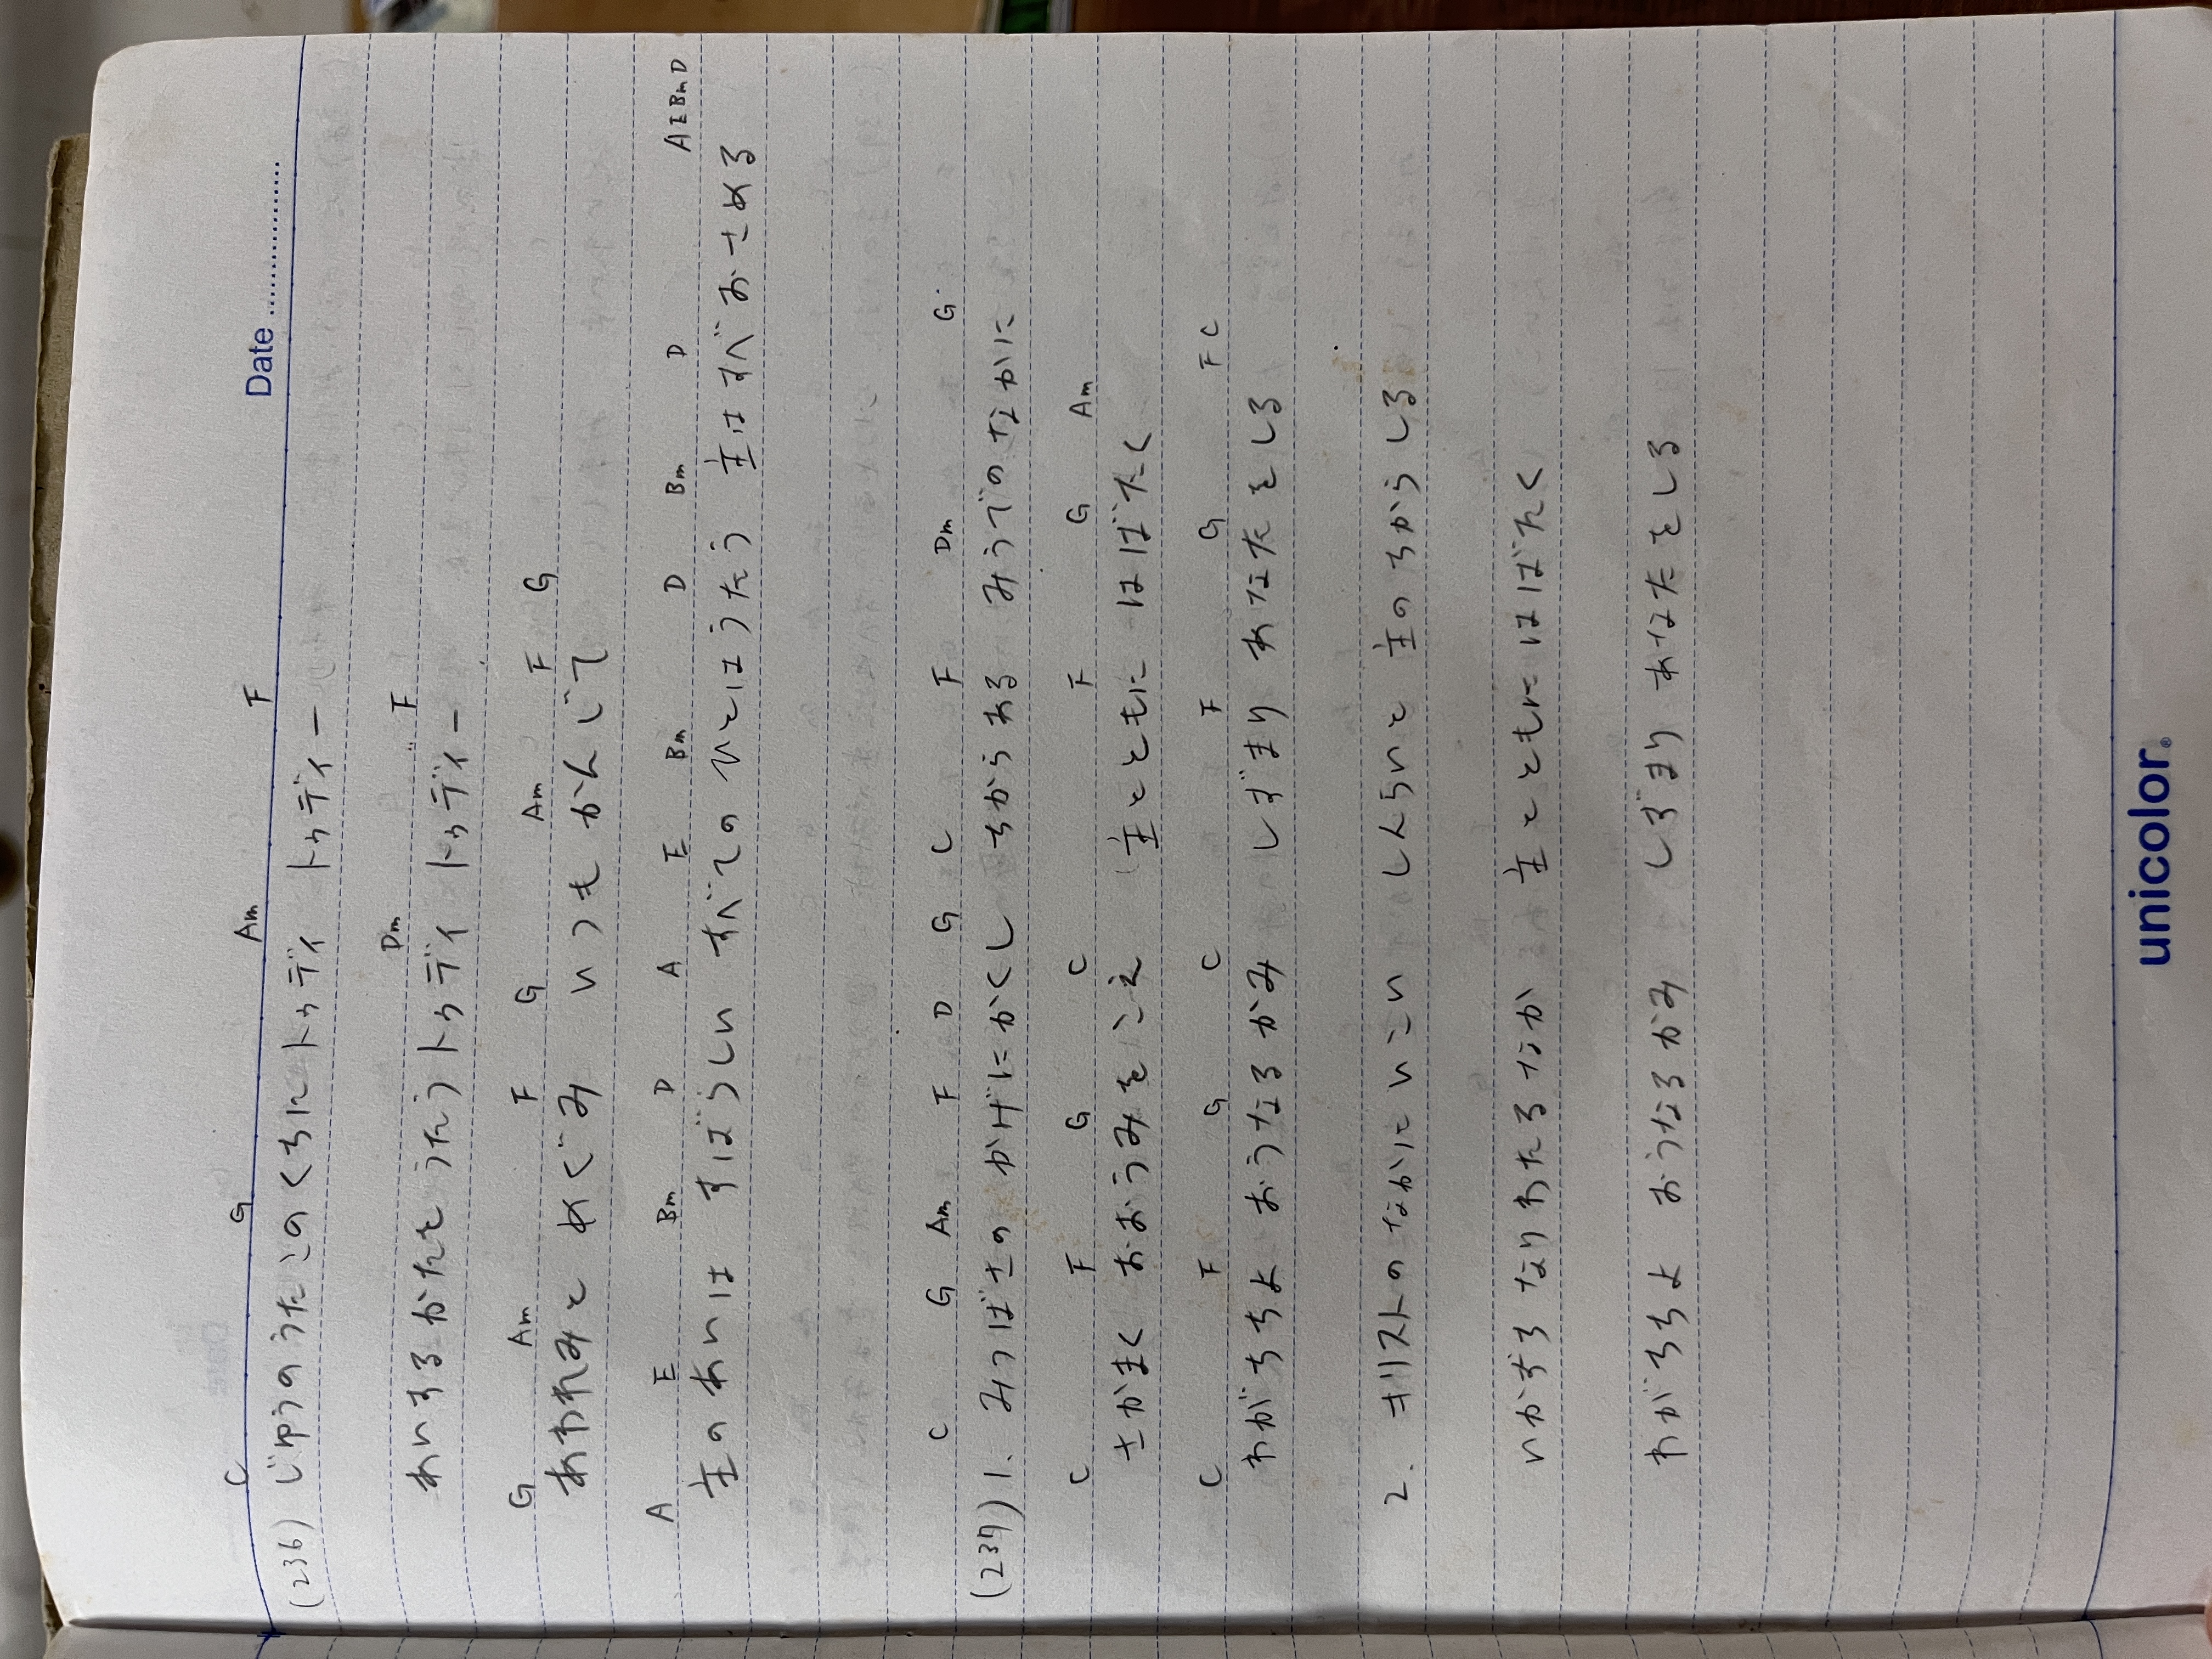 Date
C G Am F
(236) じゆうのうたこのくちにトゥディ トゥディー
Dm F
あいするかたとうたうトゥディ トゥディー
G Am F G Am F G
あわれみと めぐみ いつもかんじて
A E Bm D A E Bm D Bm D A E Bm D
主のあいは すばらしい すべてのひとはうたう 主はすべおさめる
C G Am F D G C F Dm G
(237) 1. みつばさの かげにかくし ちからある みうでのなかに
C F G C F G Am
さかまく おおうみをこえ 主とともに はばたく
C F G C F G F C
わがちちよ おうなるかみ しずまり あなたをしる
2. キリストのなかに いこい しんらいと 主のちからしる
いかずち なりわたるなか 主とともに はばたく
わがちちよ おうなるかみ しずまり あなたをしる
unicolor®